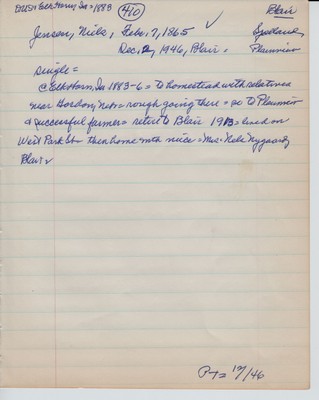 EUS= Elk Horn, Ia = 1883 (410) Blair
Jensen, Niels, Febr. 7, 1865
Dec. 2, 1946, Blair. Plumview
single =
@ Elk Horn, Ia 1883-6 = to homestead with relatives
near Gordon, Neb = rough going there = so to Plumview
& successful farmer = retire to Blair 1913 = lived on
West Park St = then home with niece = Mrs. Nels Nygaard,
Blair
PT= 12/46